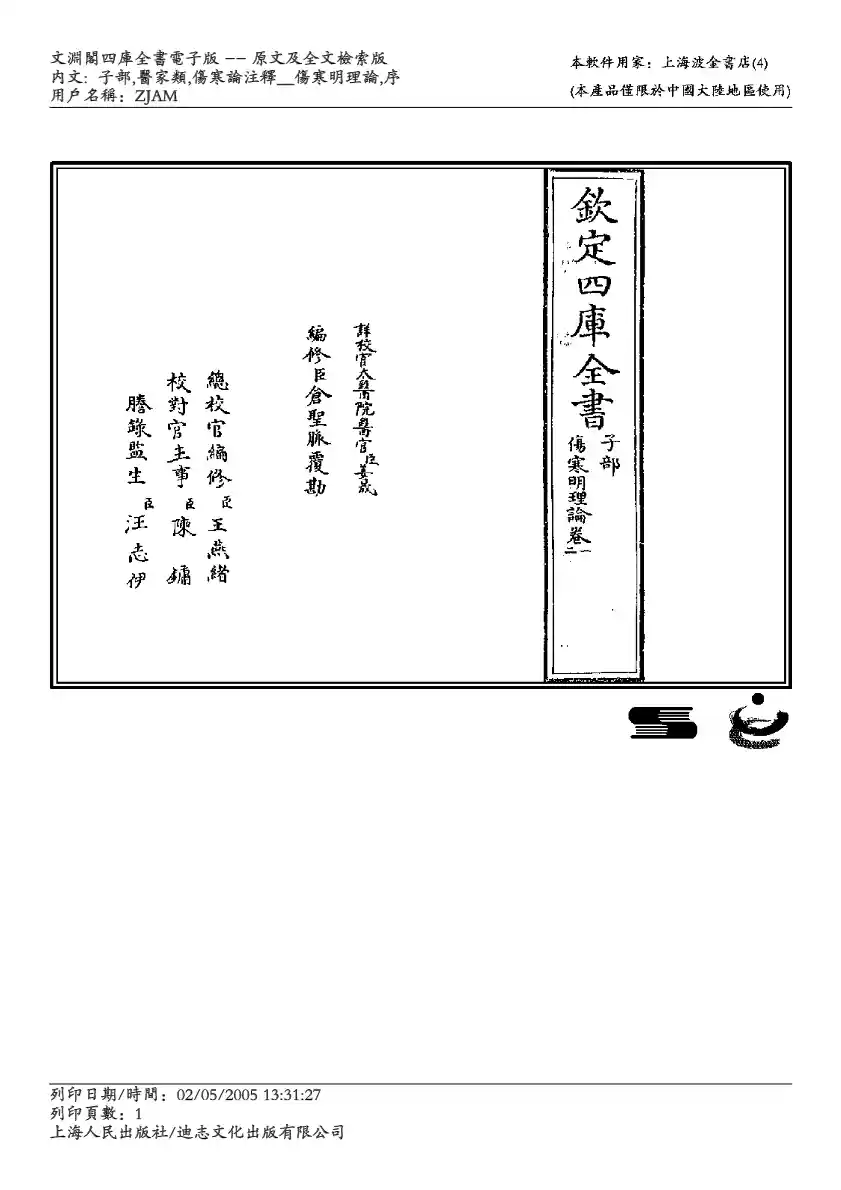 文淵閣四庫全書電子版 —— 原文及全文檢索版
內文: 子部,醫家類,傷寒論注釋__傷寒明理論,序
用戶名稱：ZJAM
本軟件用家：上海波金書店(4)
(本產品僅限於中國大陸地區使用)
欽定四庫全書
子部
傷寒明理論卷一二
詳校官太醫院醫官臣姜晟
編修臣倉聖脈覆勘
總校官編修臣王燕緒
校對官主事臣陳鏞
謄錄監生臣汪志伊
列印日期/時間：02/05/2005 13:31:27
列印頁數：1
上海人民出版社/迪志文化出版有限公司